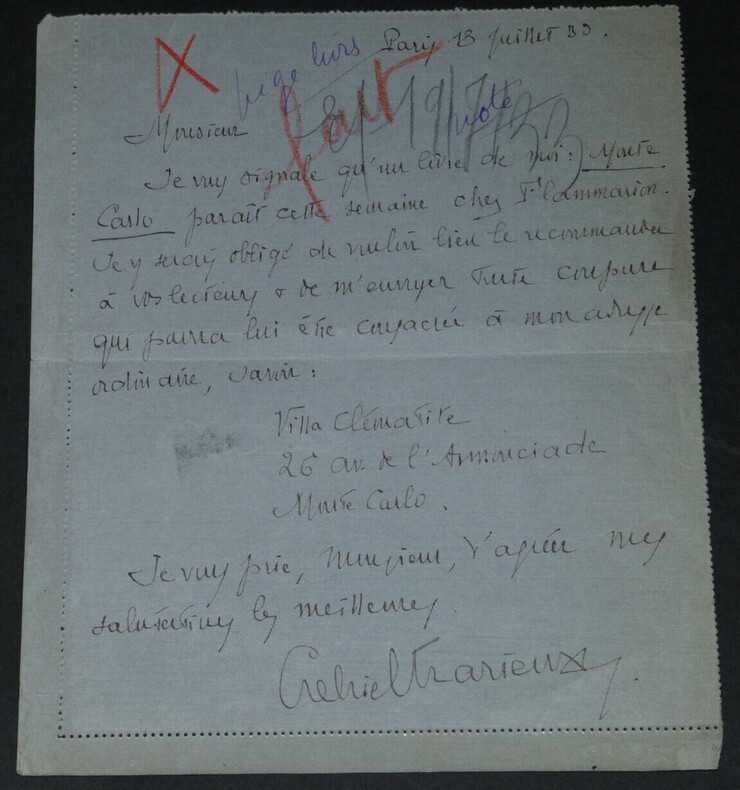 Paris 13 juillet 33.
fait
19/7/33
noté
Monsieur
Je vous signale qu'un livre de moi : Monte
Carlo paraît cette semaine chez Flammarion.
Je vous serais obligé de vouloir bien le recommander
à vos lecteurs & de m'envoyer toute coupure
qui pourra lui être consacrée à mon adresse
ordinaire, savoir :
Villa Clématite
26 av. de l'Annonciade
Monte Carlo.
Je vous prie, Monsieur, d'agréer mes
salutations les meilleures.
Gabriel Trarieux.